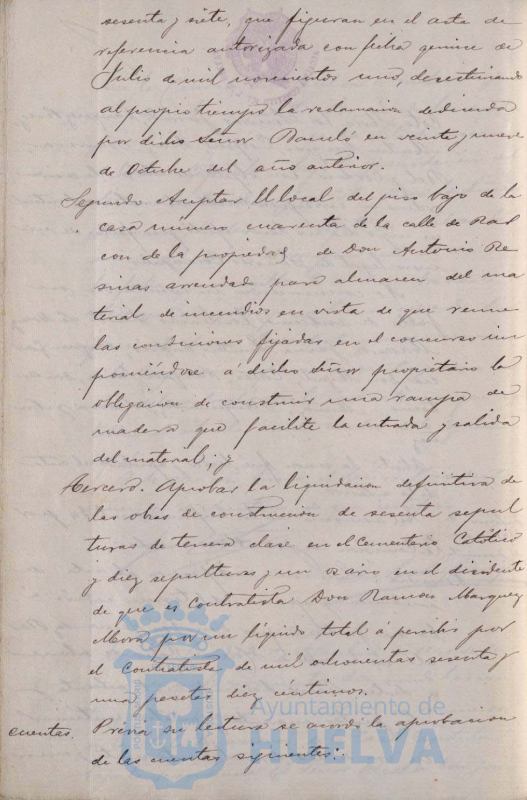 sesenta y siete, que figuran en el acta de
referencia autorizada con fecha quince de
Julio de mil novecientos uno, desestimando
al propio tiempo la reclamacion deducida
por dicho Señor en veinte y nueve
de Octubre del año anterior.
Segundo. Aceptar El local del piso bajo de la
casa número cuarenta de la calle de Ras
con de la propiedad de Don Antonio Re
sinas arrendado para almacen del ma
terial de incendios en vista de que reune
las condiciones fijadas en el concurso im
poniéndose á dicho señor propietario la
obligacion de construir una rampa de
madera que facilite la entrada y salida
del material; y
tercero. Aprobar la liquidacion definitiva de
las obras de construccion de sesenta sepul
turas de tercera clase en el Cementerio Católico
y diez sepulturas y un osario en el disidente
de que es Contratista Don Ramon Marquez
Mora por un líquido total á percibir por
el Contratista de mil ochocientas sesenta y
una pesetas diez céntimos.
cuentas. Previa su lectura se acordó la aprobacion
de las cuentas siguientes:
Ayuntamiento de
HUELVA